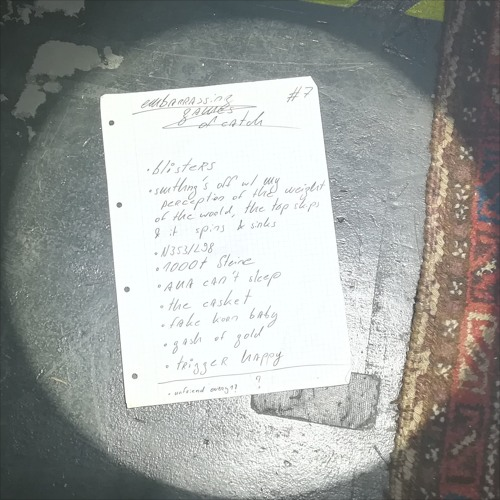 embarrassing #7
games
of catch
• blisters
• smthng's off w/ my
perception of the weight
of the world, the top skips
& it spins & sinks
• N353/L98
• 1000t Steine
• AUA can't sleep
• the casket
• fake born baby
• gash of gold
• trigger happy
?